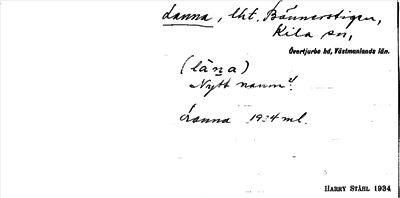 Lanna, lht. Bännarstigen,
Kila sn,
Övertjurbo hd, Västmanlands län.
(lan̲a)
Nytt namn".
Lanna 1934 ml.
HARRY STÅHL 1934